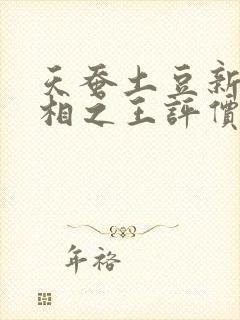 天蚕土豆新
相之王評價
年袼